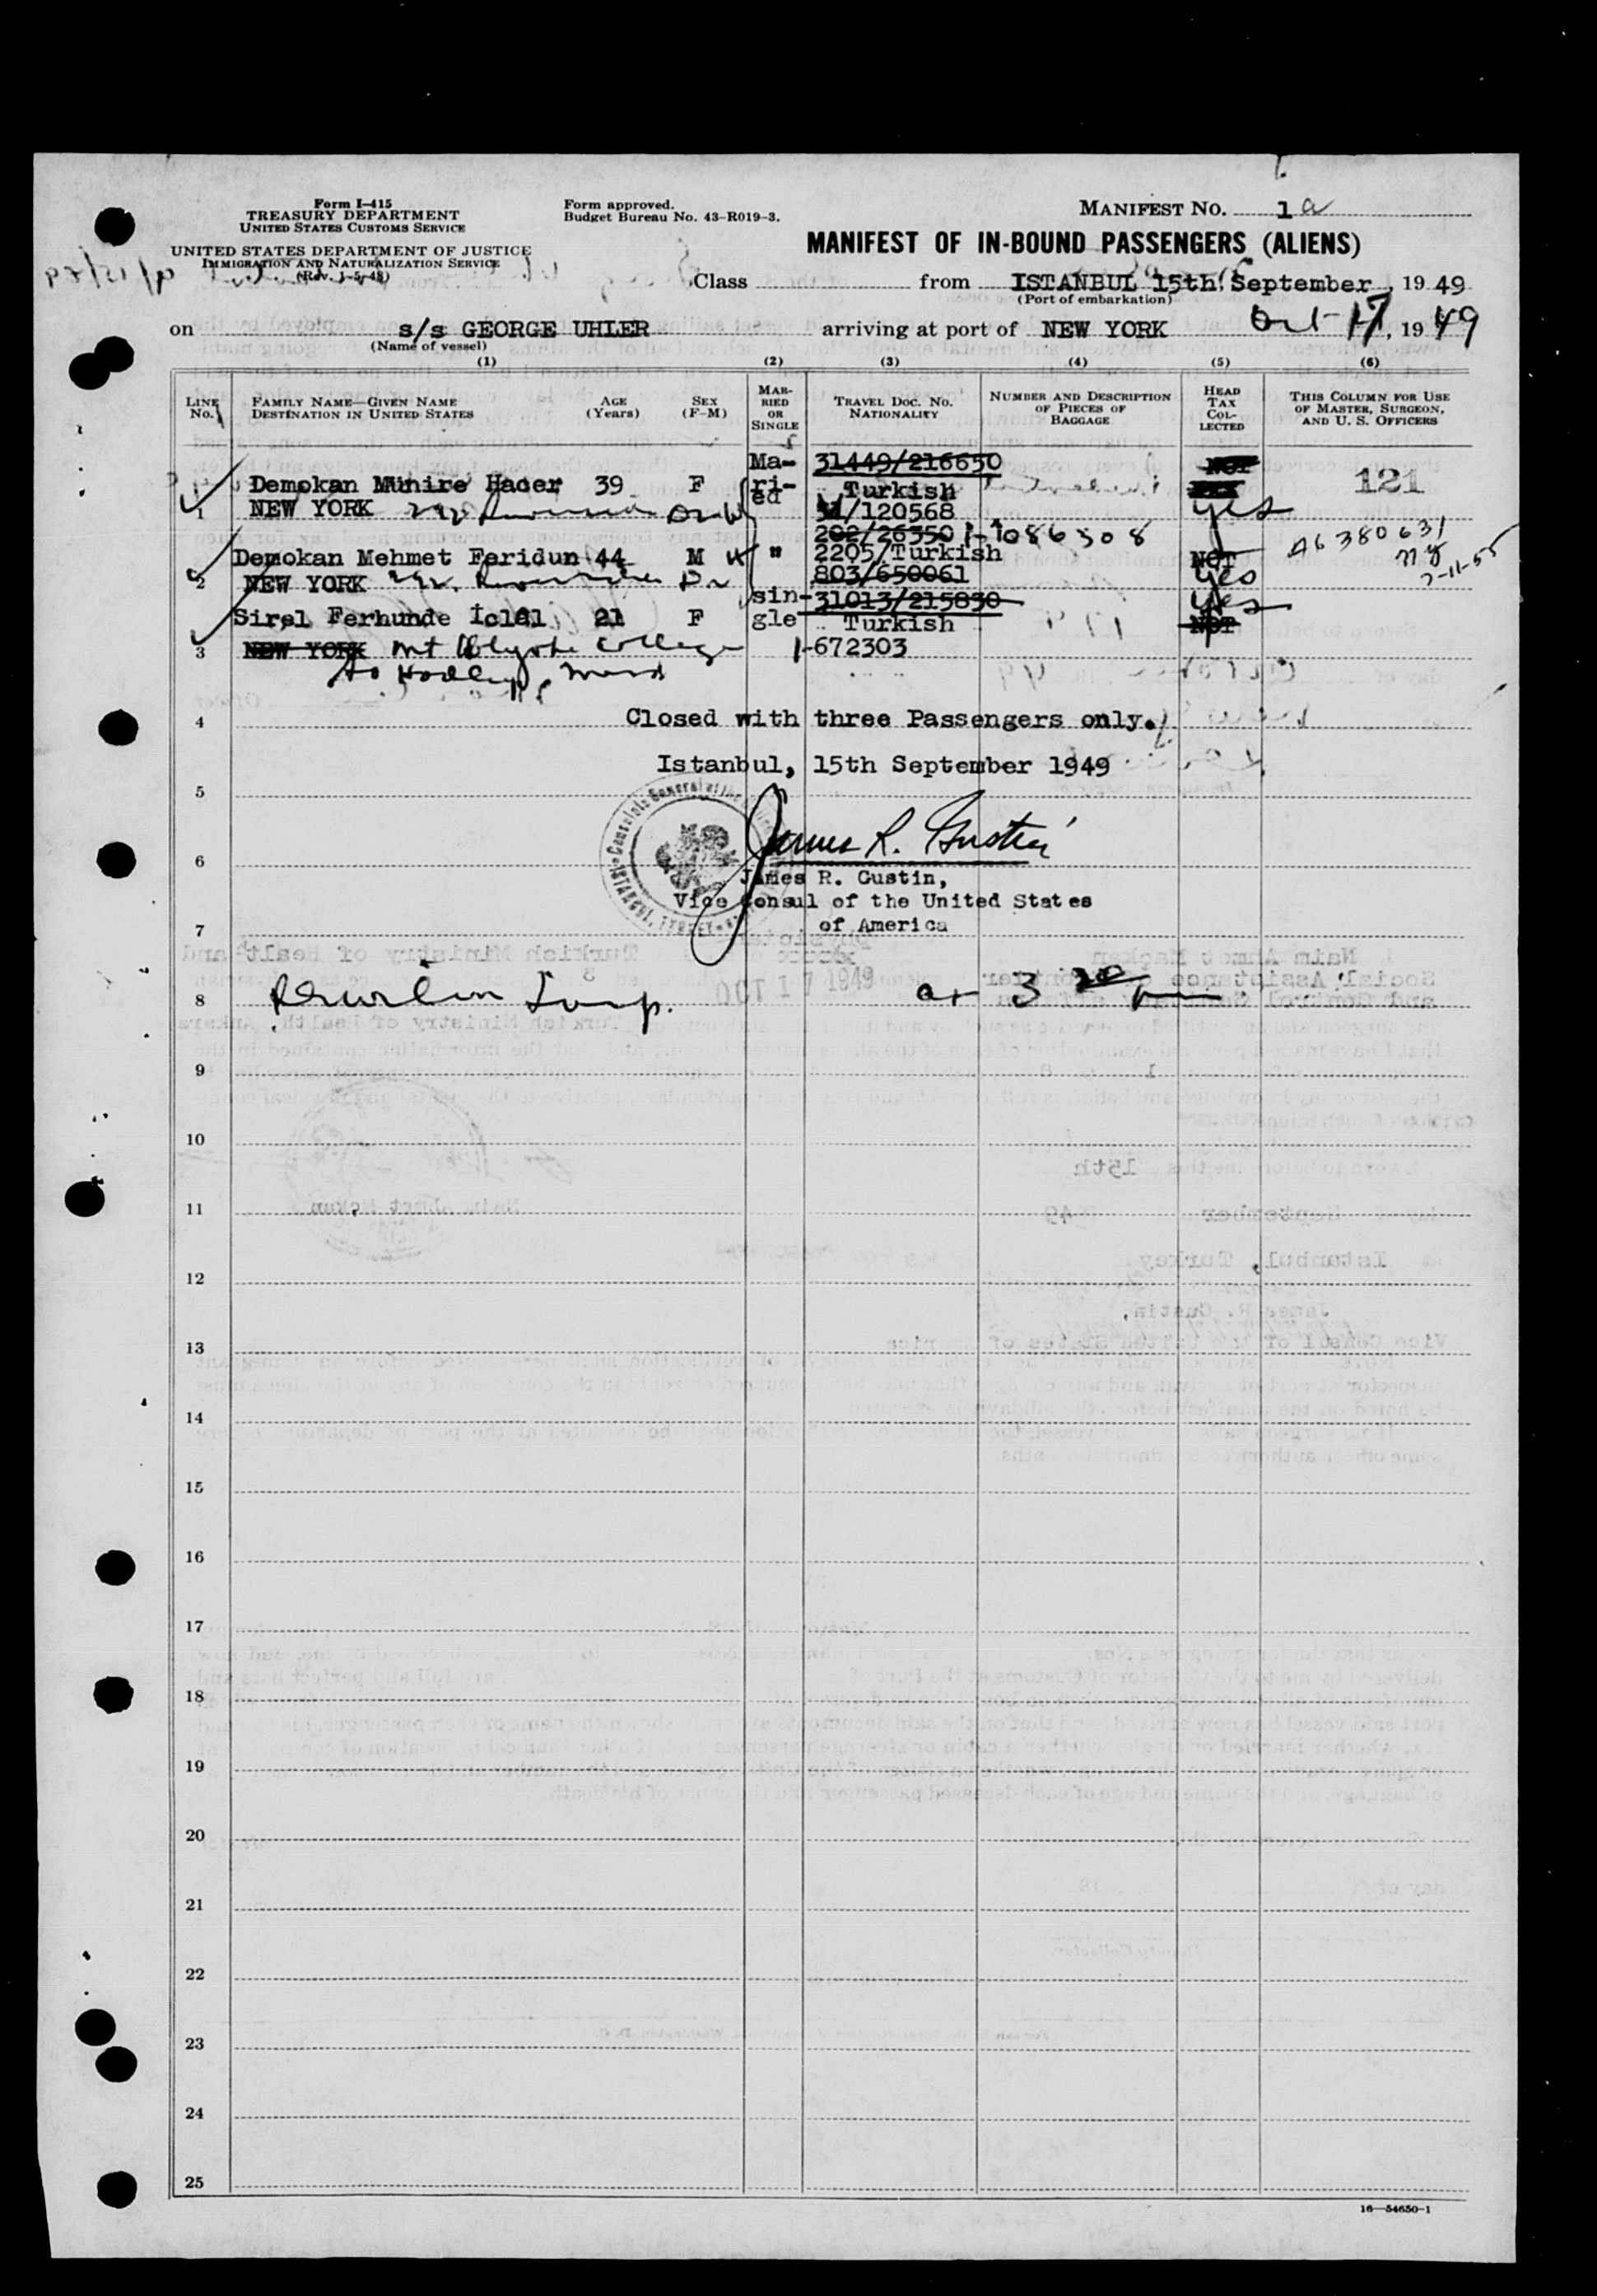 Form I-415
TREASURY DEPARTMENT
UNITED STATES CUSTOMS SERVICE
UNITED STATES DEPARTMENT OF JUSTICE
IMMIGRATION AND NATURALIZATION SERVICE
(Rev. 1-5-48)
Form approved.
Budget Bureau No. 43-R019-3.
MANIFEST NO. 1 a
MANIFEST OF IN-BOUND PASSENGERS (ALIENS)
Class from ISTANBUL 15th September, 19 49
(Port of embarkation)
on s/s GEORGE UHLER arriving at port of NEW YORK Oct 17, 19 49
(Name of vessel)
(1) (2) (3) (4) (5) (6)
LINE No. FAMILY NAME—GIVEN NAME DESTINATION IN UNITED STATES AGE (Years) SEX (F-M) MARRIED OR SINGLE TRAVEL DOC. NO. NATIONALITY NUMBER AND DESCRIPTION OF PIECES OF BAGGAGE HEAD TAX COLLECTED THIS COLUMN FOR USE OF MASTER, SURGEON, AND U. S. OFFICERS
Ma- 31449/216650 NOT
Demokan Münire Hacer 39 F ri- Turkish 121
1 NEW YORK ed /120568 Yes
202/26350 1-1086308 A6380631
Demokan Mehmet Feridun 44 M " 2205/Turkish NOT NY
2 NEW YORK Dr 803/650061 Yes 2-11-55
sin- 31013/215830 Yes
Sirel Ferhunde İclal 21 F gle Turkish NOT
3 NEW YORK Mt Holyoke College 1-672303
So Hadley, Mass
4 Closed with three Passengers only.
Istanbul, 15th September 1949
5
6 James R. Gustin
James R. Gustin,
Vice Consul of the United States
7 of America
8 OCT 17 1949 at 3
9
10
11
12
13
14
15
16
17
18
19
20
21
22
23
24
25
16—54650-1